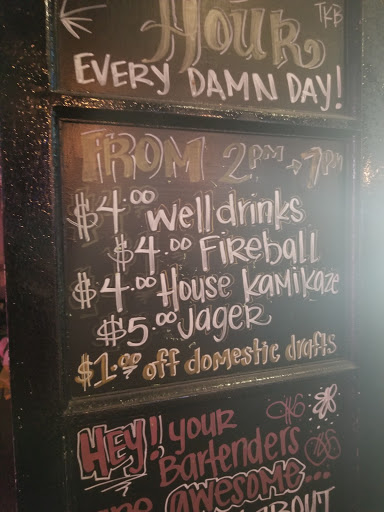 Hour TKB
EVERY DAMN DAY!
FROM 2PM → 7PM
$4.00 well drinks
$4.00 FireBall
$4.00 House Kamikaze
$5.00 Jager
$1.00 off domestic drafts
HEY! your
Bartenders
are awesome...
ABOUT